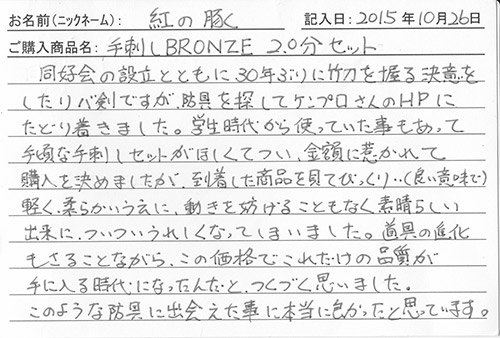 お名前(ニックネーム): 紅の豚く 記入日: 2015年10月26日
ご購入商品名: 手刺しBRONZE 2.0分セット
同好会の設立とともに30年ぶりに竹刀を握る決意を
したリバ剣ですが、防具を探してケンプロさんのHPに
たどり着きました。学生時代から使っていた事もあって
手頃な手刺しセットがほしくてつい、金額に惹かれて
購入を決めましたが、到着した商品を見てびっくり‥(良い意味で)
軽く、柔らかいうえに、動きを妨げることもなく素晴らしい
出来に、ついついうれしくなってしまいました。道具の進化
もさることながら、この価格でこれだけの品質が
手に入る時代になったんだと、つくづく思いました。
このような防具に出会えた事に本当に良かったと思っています。